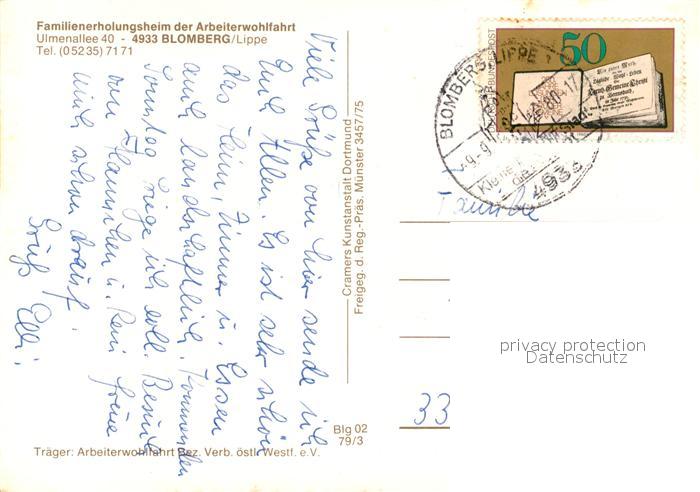 Familienerholungsheim der Arbeiterwohlfahrt
Ulmenallee 40 - 4933 BLOMBERG/Lippe
Tel. (05235) 7171
Viele Grüße von hier sende ich
Euch Allen. Es ist sehr schön
das Heim, Zimmer u. Essen
auch landschaftlich. Kommenden
Sonntag kriege ich woll. Besuch
von Hannchen u. Reni freue
mich schon drauf.
Gruß Elli.
Cramers Kunstanstalt Dortmund
Freigeg. d. Reg.-Präs. Münster 3457/75
Blg 02
79/3
Träger: Arbeiterwohlfahrt Bez. Verb. östl. Westf. e.V.
50
BUNDESPOST
BLOMBERG, LIPPE 1
493
Familie
privacy protection
Datenschutz
33